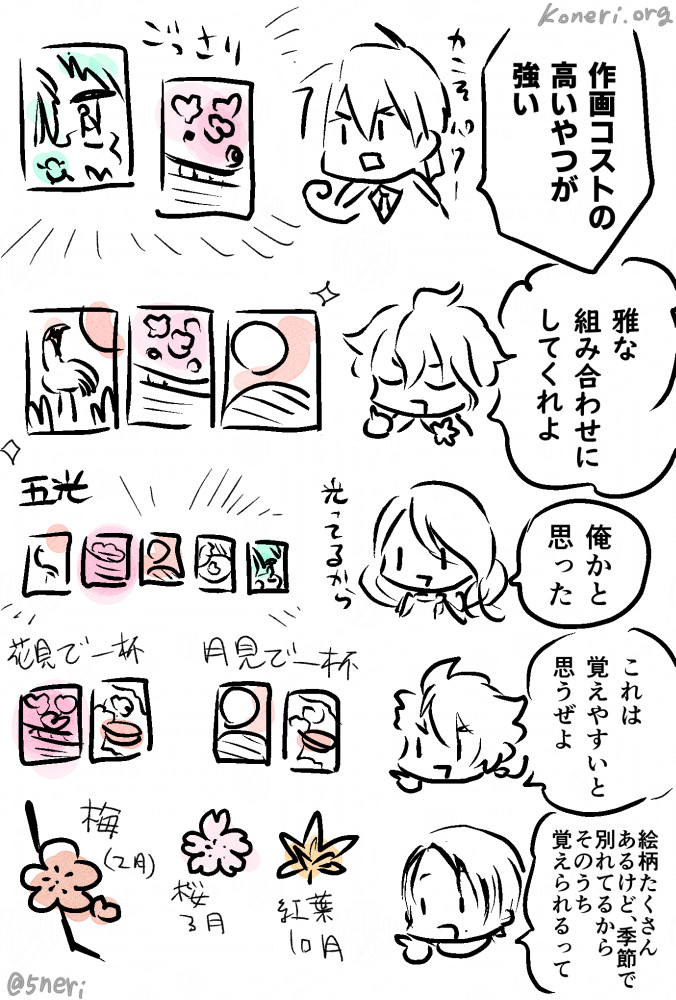 Koneri.org
作画コストの
高いやつが
強い
ごっさり
雅な
組み合わせに
してくれよ
俺かと
思った
光ってるから
五光
これは
覚えやすいと
思うぜよ
月見で一杯
花見で一杯
絵柄たくさん
あるけど、季節で
別れてるから
そのうち
覚えられるって
梅
(2月)
桜
3月
紅葉
10月
@5neri